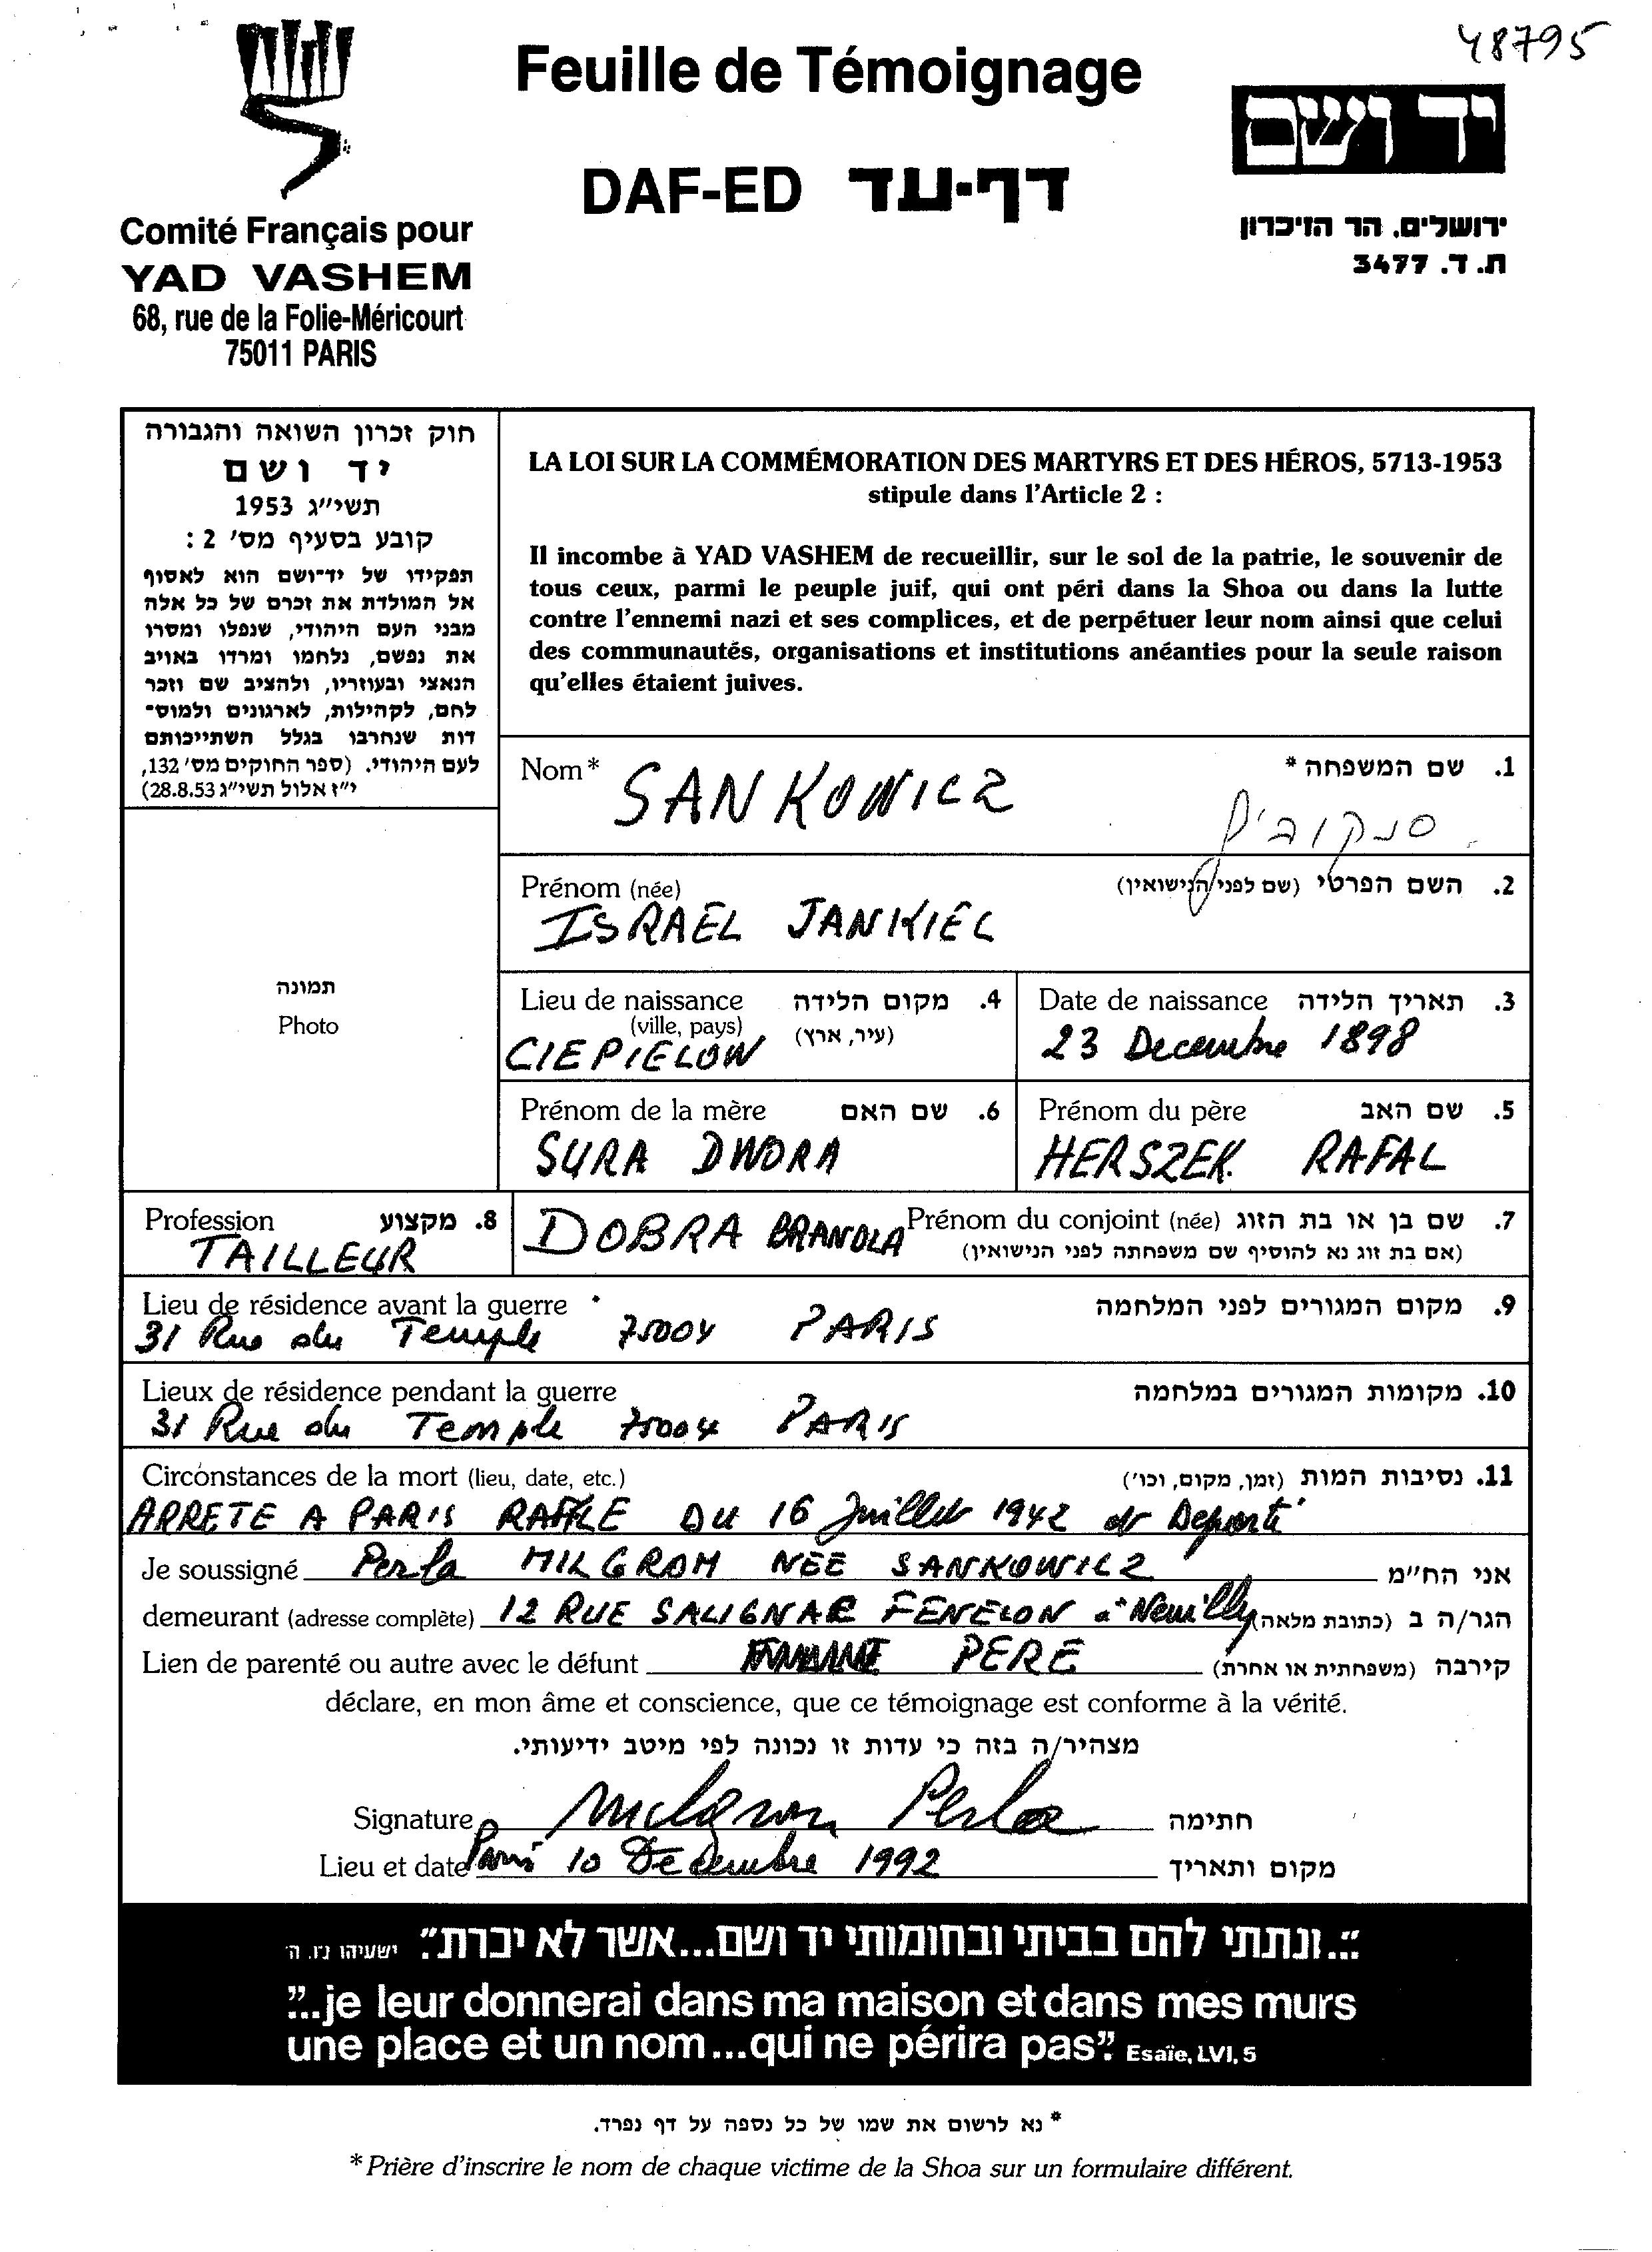 48795
Feuille de Témoignage
DAF-ED דף-עד
יד ושם
ירושלים. הר הזיכרון
ת. ד. 3477
Comité Français pour
YAD VASHEM
68, rue de la Folie-Méricourt
75011 PARIS
חוק זכרון השואה והגבורה
יד ושם
תשי״ג 1953
קובע בסעיף מס׳ 2 :
תפקידו של יד־ושם הוא לאסוף
אל המולדת את זכרם של כל אלה
מבני העם היהודי, שנפלו ומסרו
את נפשם, נלחמו ומרדו באויב
הנאצי ובעוזריו, ולהציב שם וזכר
להם, לקהילות, לארגונים ולמוס־
דות שנחרבו בגלל השתייכותם
לעם היהודי. (ספר החוקים מס׳ 132,
י״ז אלול תשי״ג 28.8.53)
LA LOI SUR LA COMMÉMORATION DES MARTYRS ET DES HÉROS, 5713-1953
stipule dans l'Article 2 :
Il incombe à YAD VASHEM de recueillir, sur le sol de la patrie, le souvenir de
tous ceux, parmi le peuple juif, qui ont péri dans la Shoa ou dans la lutte
contre l'ennemi nazi et ses complices, et de perpétuer leur nom ainsi que celui
des communautés, organisations et institutions anéanties pour la seule raison
qu'elles étaient juives.
Nom* SANKOWICZ 1. שם המשפחה *
סנקוביץ
Prénom (née) 2. השם הפרטי (שם לפני הנישואין)
ISRAEL JANKIEL
תמונה
Photo
Lieu de naissance 4. מקום הלידה
(ville, pays) (עיר, ארץ)
CIEPIELOW
Date de naissance 3. תאריך הלידה
23 Decembre 1898
Prénom de la mère 6. שם האם
SURA DWORA
Prénom du père 5. שם האב
HERSZEK RAFAL
Profession 8. מקצוע
TAILLEUR
DOBRA BRANDLA Prénom du conjoint (née) 7. שם בן או בת הזוג
(אם בת זוג נא להוסיף שם משפחתה לפני הנישואין)
Lieu de résidence avant la guerre 9. מקום המגורים לפני המלחמה
31 Rue du Temple 75004 PARIS
Lieux de résidence pendant la guerre 10. מקומות המגורים במלחמה
31 Rue du Temple 75004 PARIS
Circonstances de la mort (lieu, date, etc.) 11. נסיבות המות (זמן, מקום, וכו׳)
ARRETE A PARIS RAFLE DU 16 Juillet 1942 et Deporté
Je soussigné Perla MILGROM NEE SANKOWICZ אני הח״מ
demeurant (adresse complète) 12 RUE SALIGNAC FENELON à Neuilly הגר/ה ב (כתובת מלאה)
Lien de parenté ou autre avec le défunt PERE קירבה (משפחתית או אחרת)
déclare, en mon âme et conscience, que ce témoignage est conforme à la vérité.
מצהיר/ה בזה כי עדות זו נכונה לפי מיטב ידיעותי.
Signature Milgrom Perla חתימה
Lieu et date Paris 10 Decembre 1992 מקום ותאריך
״...ונתתי להם בביתי ובחומותי יד ושם...אשר לא יכרת״ ישעיהו נו. ה׳
"...je leur donnerai dans ma maison et dans mes murs
une place et un nom...qui ne périra pas". Esaïe, LVI, 5
* נא לרשום את שמו של כל נספה על דף נפרד.
* Prière d'inscrire le nom de chaque victime de la Shoa sur un formulaire différent.